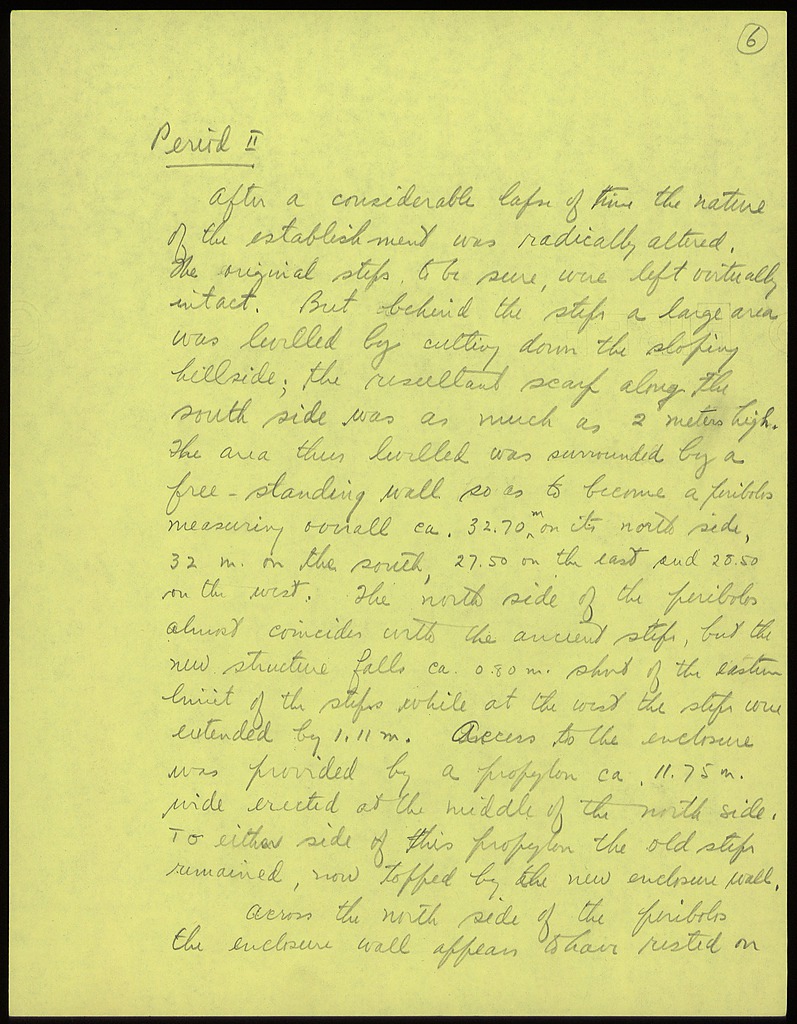 6
Period II
After a considerable lapse of time the nature
of the establishment was radically altered.
The original steps, to be sure, were left virtually
intact. But behind the steps a large area
was levelled by cutting down the sloping
hillside; the resultant scarp along the
south side was as much as 2 meters high.
The area thus levelled was surrounded by a
free-standing wall so as to become a peribolos
measuring overall ca. 32.70 m on its north side,
32 m. on the south, 27.50 on the east and 28.50
on the west. The north side of the peribolos
almost coincides with the ancient steps, but the
new structure falls ca. 0.80 m. short of the eastern
limit of the steps while at the west the steps were
extended by 1.11 m. Access to the enclosure
was provided by a propylon ca. 11.75 m.
wide erected at the middle of the north side.
To either side of this propylon the old steps
remained, now topped by the new enclosure wall.
Across the north side of the peribolos
the enclosure wall appears to have rested on